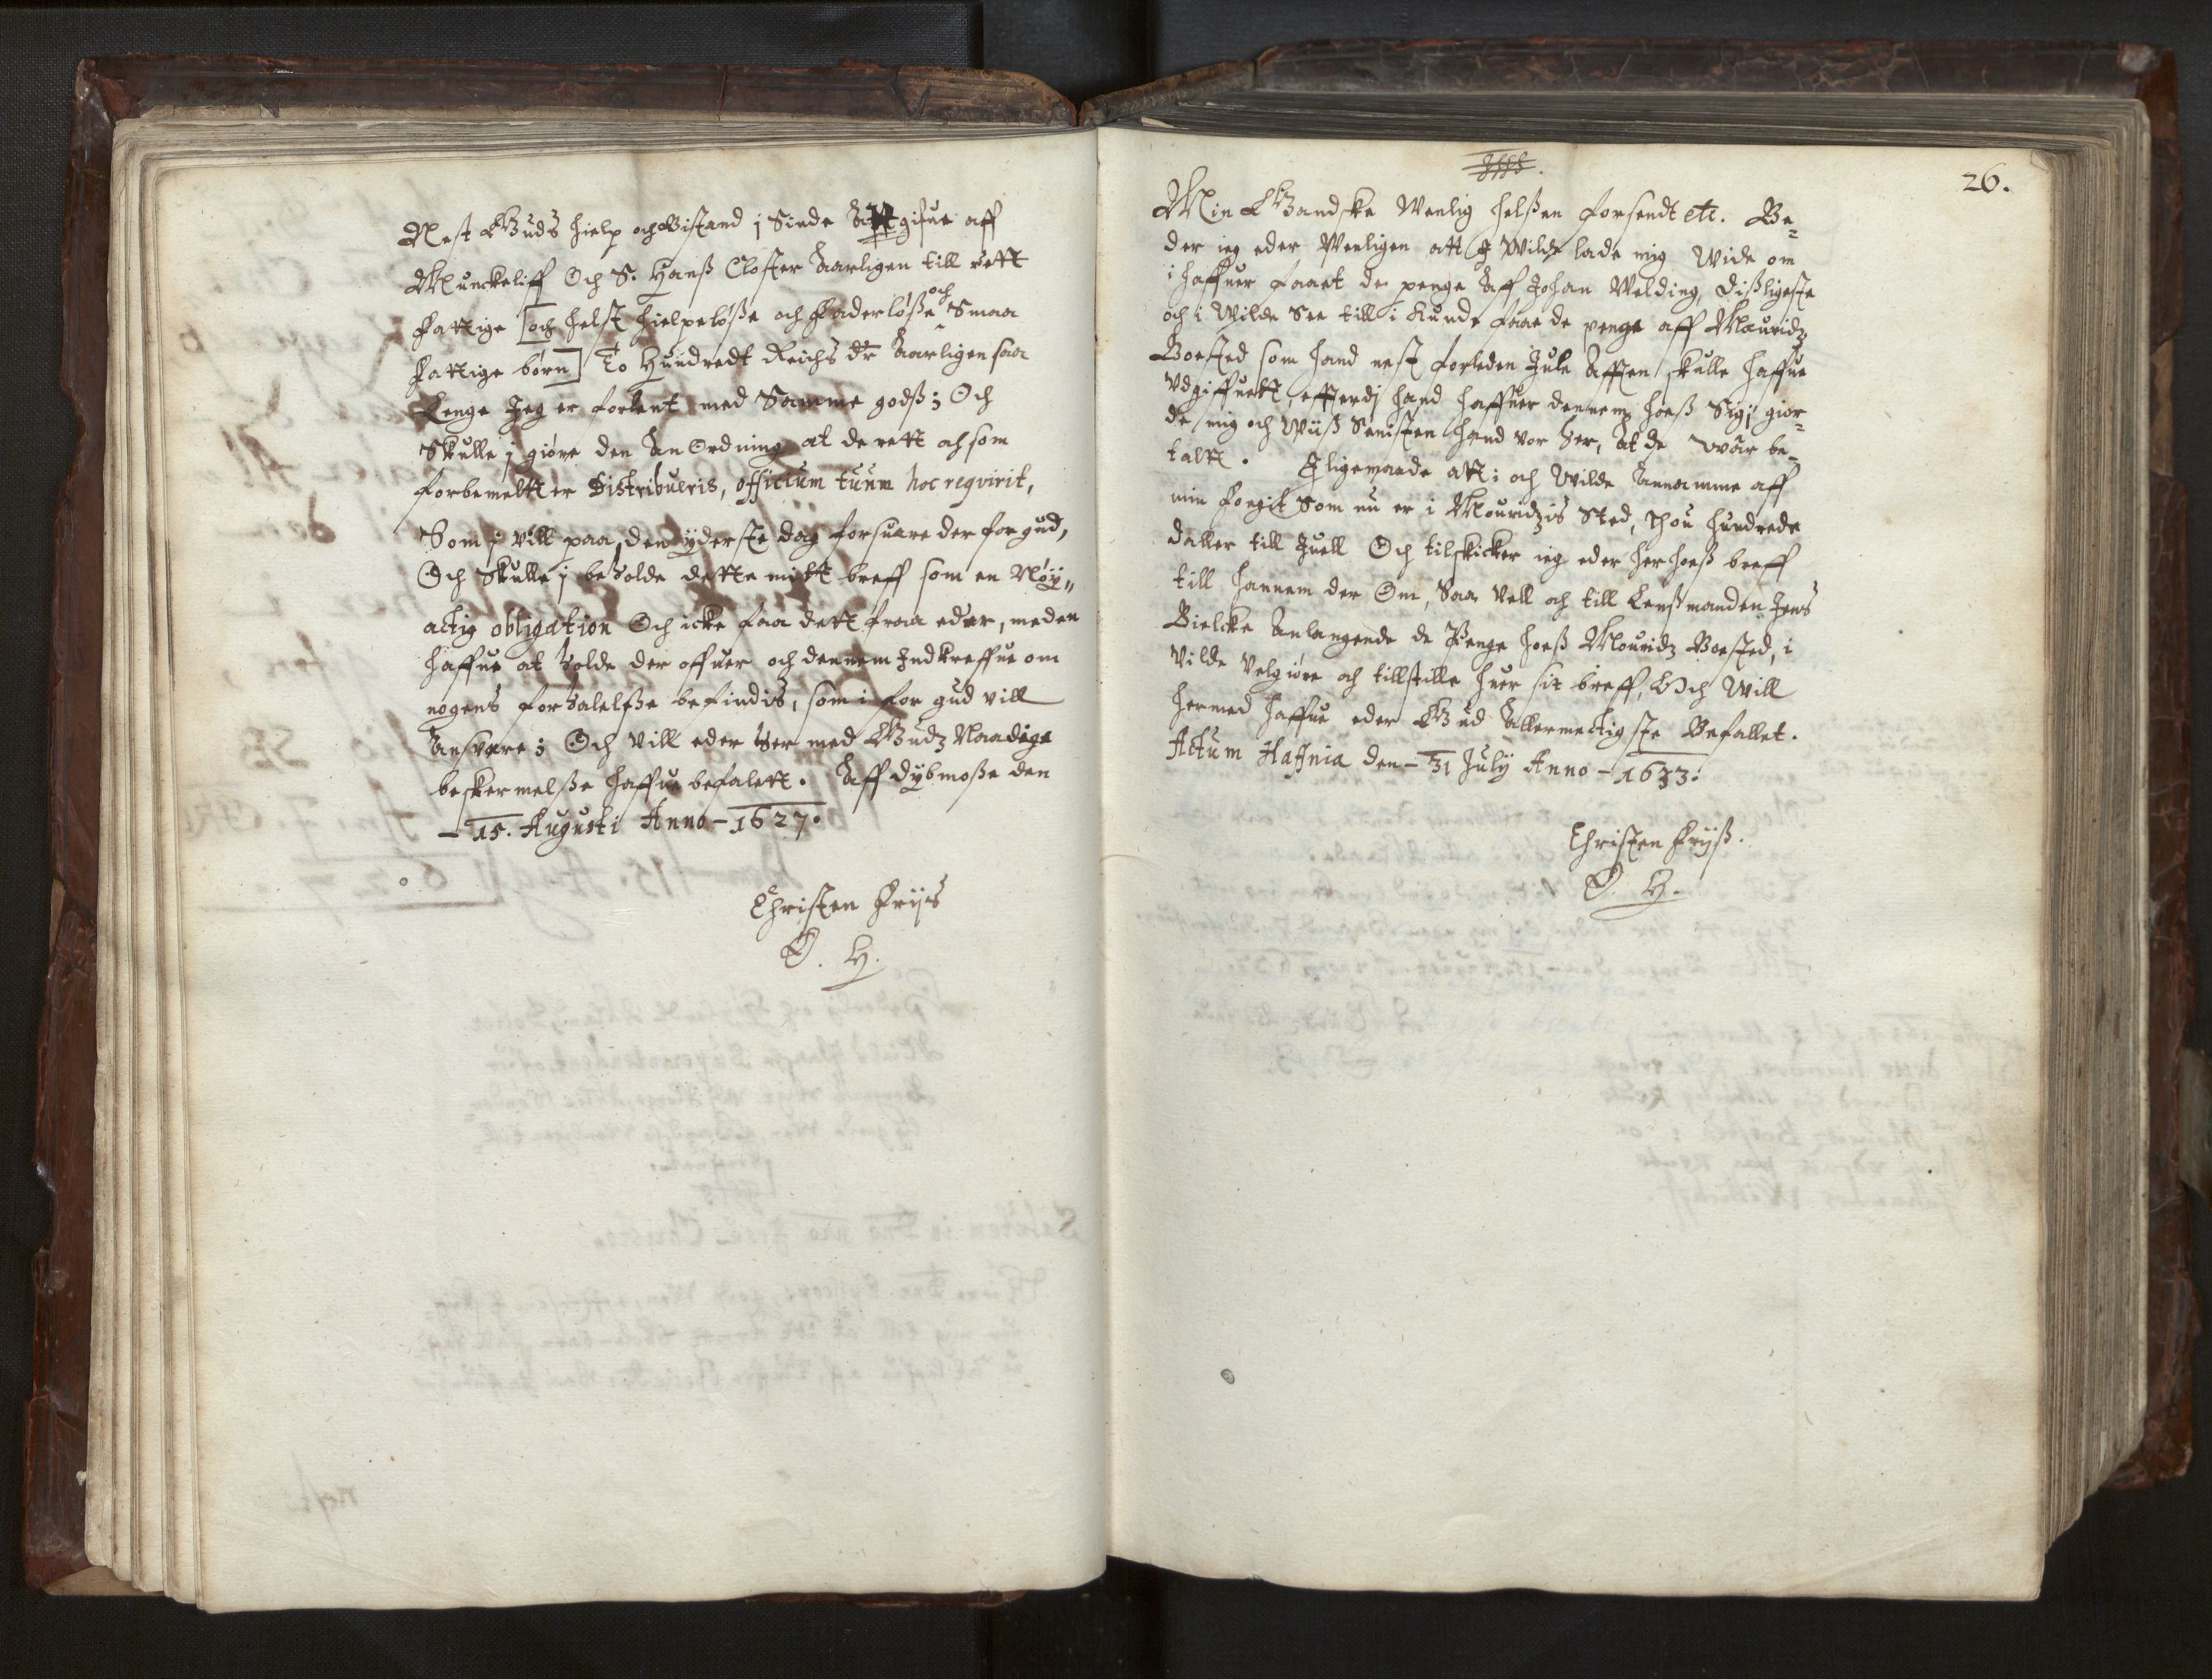 Nest Guds hielp och Bistand j Sinde att gifue aff
Munckeliff Och S. Hanß Closter Aarligen till rett
fattige [och helst hielpeløße och faderløße och Smaa
fattige børn] To Hundredt Reichs dr Aarligen saa
Lenge Jeg er forlent med Samme godß; Och
Skulle j giøre den An Ordning at de rett och som
forbemelt er Distribueris, officium tuum hoc reqvirit,
Som j vill paa den yderste dag forsuare der for gud,
Och Skulle j beholde dette mitt breff som en Nøy„
actig obligation Och icke faa dett fraa eder, meden
haffue at holde der offuer och dennem Indkreffue om
nogens forhalelsse befindis, som i for gud vill
Ansvare; Och vill eder her med Gudz Naadige
beskermelße haffue befalett. Aff dybmoße den
– 15. Augusti Anno – 1627.
Christen Friis
E. H.
26.
Min Gandske Venlig helßen forsendt etc. Be=
der ieg eder Venligen att J Wilde lade mig Wide om
i haffuer faaet de penge Aff Johan Velding, dißligeste
och i Wilde See till i kunde faae de penge aff Mauridz
Boested som hand nest forleden Jule Afften skulle haffue
Udgiffuett effterdj hand haffuer dennem hoeß Sig, gior=
de mig och Wiiß Senisten hand vor her, At de wår be=
talt. Jligemaade att i och Wilde Annamme aff
min fogit Som nu er i Mouridzis Sted, thou hundrede
daller till Juell Och tilskicker ieg eder her hoeß breff
till hannem der Om, Saa vell och till Lenßmanden Jens
Bielcke Anlangende de Penge hoeß Mouridz Boested, i
vilde velgiøre och tillstille huer sit breff, Och Will
hermed haffue eder Gud Allermectigste Befallet.
Actum Hafnia den – 31 July Anno – 1633:
Christen Friiß.
E. H.